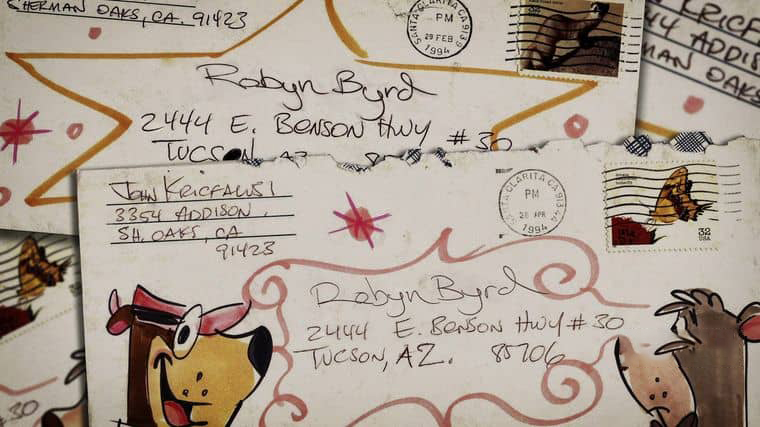 SHERMAN OAKS, CA. 91423
SANTA CLARITA CA 913
PM
29 FEB
1994
Robyn Byrd
2444 E. BENSON HWY #30
TUCSON AZ
KRICFA
44 ADDIS
MAN OAKS
JOHN KRICFALUSI
3354 ADDISON
SH. OAKS, CA
91423
CLARITA CA 913
PM
28 APR
1994
32
USA
Robyn Byrd
2444 E. BENSON HWY #30
TUCSON, AZ. 85706
30